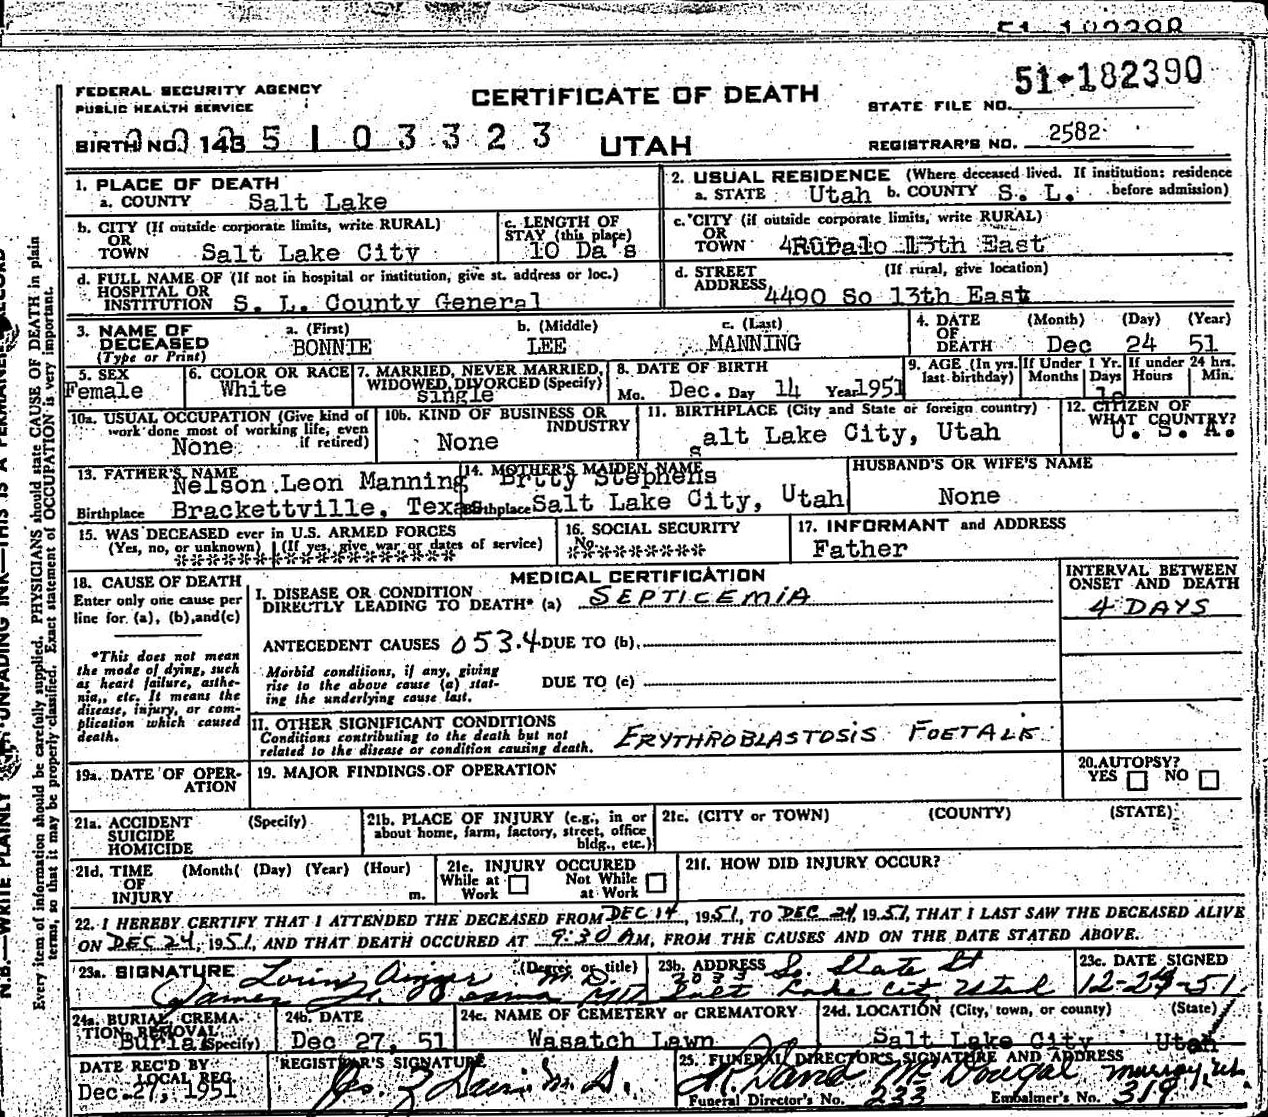 51-182390
FEDERAL SECURITY AGENCY
PUBLIC HEALTH SERVICE
CERTIFICATE OF DEATH
STATE FILE NO. 51-182390
BIRTH NO. 143 5 1 0 3 3 2 3
UTAH
REGISTRAR'S NO. 2582
1. PLACE OF DEATH
a. COUNTY Salt Lake
2. USUAL RESIDENCE (Where deceased lived. If institution: residence before admission)
a. STATE Utah b. COUNTY S. L.
b. CITY (If outside corporate limits, write RURAL)
OR
TOWN Salt Lake City
c. LENGTH OF
STAY (this place)
10 Da's
c. CITY (if outside corporate limits, write RURAL)
OR
TOWN 13th East
d. FULL NAME OF (If not in hospital or institution, give st. address or loc.)
HOSPITAL OR
INSTITUTION S. L. County General
d. STREET (If rural, give location)
ADDRESS 4490 So 13th East
3. NAME OF
DECEASED
(Type or Print)
a. (First) b. (Middle) c. (Last)
BONNIE LEE MANNING
4. DATE
OF
DEATH
(Month) (Day) (Year)
Dec 24 51
5. SEX
Female
6. COLOR OR RACE
White
7. MARRIED, NEVER MARRIED,
WIDOWED, DIVORCED (Specify)
single
8. DATE OF BIRTH
Mo. Dec. Day 14 Year 1951
9. AGE (In yrs. last birthday)
If Under 1 Yr.
Months Days
If under 24 hrs.
Hours Min.
10a. USUAL OCCUPATION (Give kind of
work done most of working life, even
if retired)
None
10b. KIND OF BUSINESS OR
INDUSTRY
None
11. BIRTHPLACE (City and State or foreign country)
Salt Lake City, Utah
12. CITIZEN OF
WHAT COUNTRY?
U. S. A.
13. FATHER'S NAME
Nelson Leon Manning
Birthplace Brackettville, Texas
14. MOTHER'S MAIDEN NAME
Betty Stephens
Birthplace Salt Lake City, Utah
HUSBAND'S OR WIFE'S NAME
None
15. WAS DECEASED ever in U.S. ARMED FORCES
(Yes, no, or unknown) (If yes, give war or dates of service)
16. SOCIAL SECURITY
No. *********
17. INFORMANT and ADDRESS
Father
18. CAUSE OF DEATH
Enter only one cause per
line for (a), (b), and (c)
*This does not mean
the mode of dying, such
as heart failure, asthe-
nia, etc. It means the
disease, injury, or com-
plication which caused
death.
MEDICAL CERTIFICATION
INTERVAL BETWEEN
ONSET AND DEATH
I. DISEASE OR CONDITION
DIRECTLY LEADING TO DEATH* (a) SEPTICEMIA
4 DAYS
ANTECEDENT CAUSES 053.4 DUE TO (b)
Morbid conditions, if any, giving
rise to the above cause (a) stat-
ing the underlying cause last.
DUE TO (c)
II. OTHER SIGNIFICANT CONDITIONS
Conditions contributing to the death but not
related to the disease or condition causing death.
ERYTHROBLASTOSIS FOETALIS
19a. DATE OF OPER-
ATION
19. MAJOR FINDINGS OF OPERATION
20. AUTOPSY?
YES NO
21a. ACCIDENT (Specify)
SUICIDE
HOMICIDE
21b. PLACE OF INJURY (e.g., in or
about home, farm, factory, street, office
bldg., etc.)
21c. (CITY or TOWN) (COUNTY) (STATE)
21d. TIME (Month( (Day) (Year) (Hour)
OF
INJURY m.
21e. INJURY OCCURED
While at Work
Not While at Work
21f. HOW DID INJURY OCCUR?
22. I HEREBY CERTIFY THAT I ATTENDED THE DECEASED FROM DEC 14, 1951, TO DEC 24, 1951, THAT I LAST SAW THE DECEASED ALIVE
ON DEC 24, 1951, AND THAT DEATH OCCURED AT 9:30 AM, FROM THE CAUSES AND ON THE DATE STATED ABOVE.
23a. SIGNATURE (Degree or title) M.D.
James
23b. ADDRESS So. State St
Salt Lake City Utah
23c. DATE SIGNED
12-24-51
24a. BURIAL, CREMA-
TION, REMOVAL
(Specify)
Burial
24b. DATE
Dec 27, 51
24c. NAME OF CEMETERY or CREMATORY
Wasatch Lawn
24d. LOCATION (City, town, or county) (State)
Salt Lake City Utah
DATE REC'D BY
LOCAL REG.
Dec. 27, 1951
REGISTRAR'S SIGNATURE
M.D.
25. FUNERAL DIRECTOR'S SIGNATURE AND ADDRESS
David McDougal Murray, Ut.
Funeral Director's No. 233 Embalmer's No. 319
N.B.—WRITE PLAINLY UNFADING INK—THIS IS A PERMANENT RECORD
Every item of information should be carefully supplied. PHYSICIANS should state CAUSE OF DEATH in plain
terms, so that it may be properly classified. Exact statement of OCCUPATION is very important.